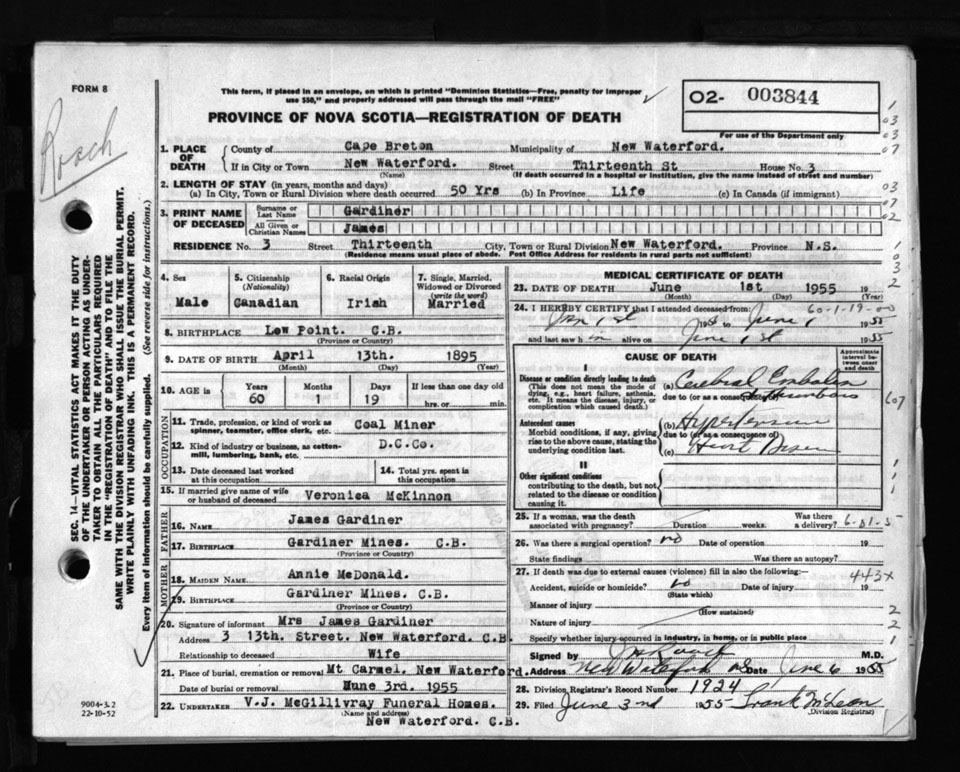 FORM 8
Roach
This form, if placed in an envelope, on which is printed "Dominion Statistics—Free, penalty for improper
use $50," and properly addressed will pass through the mail "FREE"
PROVINCE OF NOVA SCOTIA—REGISTRATION OF DEATH
02- 003844
For use of the Department only
1. PLACE OF DEATH
County of Cape Breton Municipality of New Waterford.
If in City or Town New Waterford. Street Thirteenth St House No. 3
(Name) (If death occurred in a hospital or institution, give the name instead of street and number)
2. LENGTH OF STAY (in years, months and days)
(a) In City, Town or Rural Division where death occurred 50 Yrs (b) In Province Life (c) In Canada (if immigrant)
3. PRINT NAME OF DECEASED
Surname or Last Name Gardiner
All Given or Christian Names James
RESIDENCE No. 3 Street Thirteenth City, Town or Rural Division New Waterford. Province N.S.
(Residence means usual place of abode. Post Office Address for residents in rural parts not sufficient)
4. Sex Male
5. Citizenship (Nationality) Canadian
6. Racial Origin Irish
7. Single, Married, Widowed or Divorced (write the word) Married
8. BIRTHPLACE Low Point. C.B.
(Province or Country)
9. DATE OF BIRTH April 13th. 1895
(Month) (Day) (Year)
10. AGE is Years 60 Months 1 Days 19 If less than one day old hrs. or min.
OCCUPATION
11. Trade, profession, or kind of work as spinner, teamster, office clerk, etc. Coal Miner
12. Kind of industry or business, as cotton-mill, lumbering, bank, etc. D.C.Co.
13. Date deceased last worked at this occupation
14. Total yrs. spent in this occupation
15. If married give name of wife or husband of deceased Veronica McKinnon
FATHER
16. NAME James Gardiner
17. BIRTHPLACE Gardiner Mines. C.B.
(Province or Country)
MOTHER
18. MAIDEN NAME Annie McDonald.
19. BIRTHPLACE Gardiner Mines. C.B.
(Province or Country)
20. Signature of informant Mrs James Gardiner
Address 3 13th. Street. New Waterford. C.B.
Relationship to deceased Wife
21. Place of burial, cremation or removal Mt Carmel. New Waterford.
Date of burial or removal Mune 3rd. 1955
22. UNDERTAKER V.J. McGillivray Funeral Homes.
(Name and address)
New Waterford. C.B.
MEDICAL CERTIFICATE OF DEATH
23. DATE OF DEATH June 1st 1955 19
(Month) (Day) (Year)
24. I HEREBY CERTIFY that I attended deceased from: 60-1-19-00
Jan 1st to June 1 1955
and last saw h im alive on June 1st 1955
CAUSE OF DEATH
Approximate interval between onset and death
I
Disease or condition directly leading to death
(This does not mean the mode of dying, e.g., heart failure, asthenia, etc. It means the disease, injury, or complication which caused death.)
(a) Cerebral Embolism
due to (or as a consequence of) Thrombosis
607
Antecedent causes
Morbid conditions, if any, giving rise to the above cause, stating the underlying condition last.
(b) Hypertension
due to (or as a consequence of)
(c) Heart Disease
II
Other significant conditions
contributing to the death, but not related to the disease or condition causing it
25. If a woman, was the death associated with pregnancy? Duration weeks. Was there a delivery?
26. Was there a surgical operation? no Date of operation 19
State findings Was there an autopsy?
27. If death was due to external causes (violence) fill in also the following:—
443x
Accident, suicide or homicide? no Date of injury 19
(State which)
Manner of injury
(How sustained)
Nature of injury
Specify whether injury occurred in industry, in home, or in public place
Signed by Roach M.D.
Address New Waterford NS Date June 6 1955
28. Division Registrar's Record Number 1924
29. Filed June 3nd 1955 Frank McLean
(Division Registrar)
SEC. 14—VITAL STATISTICS ACT MAKES IT THE DUTY
OF THE UNDERTAKER OR PERSON ACTING AS UNDER-
TAKER TO OBTAIN ALL THE PARTICULARS REQUIRED
IN THE "REGISTRATION OF DEATH" AND TO FILE THE
SAME WITH THE DIVISION REGISTRAR WHO SHALL ISSUE THE BURIAL PERMIT.
WRITE PLAINLY WITH UNFADING INK. THIS IS A PERMANENT RECORD.
Every item of information should be carefully supplied. (See reverse side for instructions.)
9004-3.2
22-10-52
1
03
03
07
03
07
02
1
0
3
2
1
1
1
2
2
1